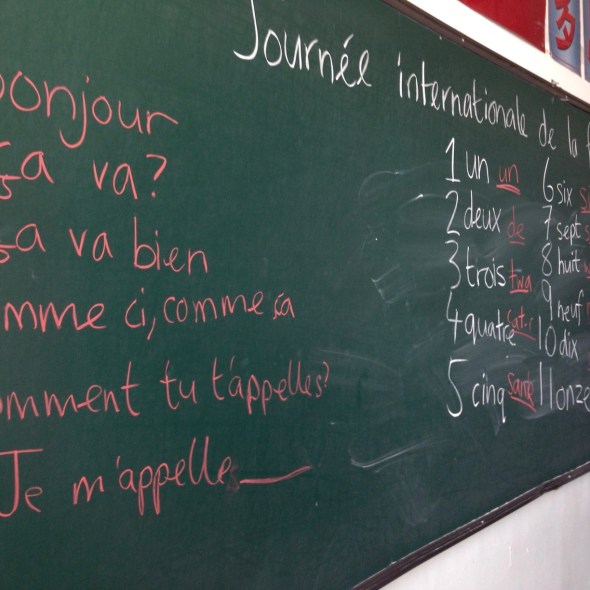 Journée internationale de la
bonjour
ça va?
ça va bien
comme ci, comme ça
comment tu t'appelles?
Je m'appelle
1 un un
2 deux de
3 trois twa
4 quatre cat-r
5 cinq sank
6 six
7 sept
8 huit
9 neuf
10 dix
11 onze